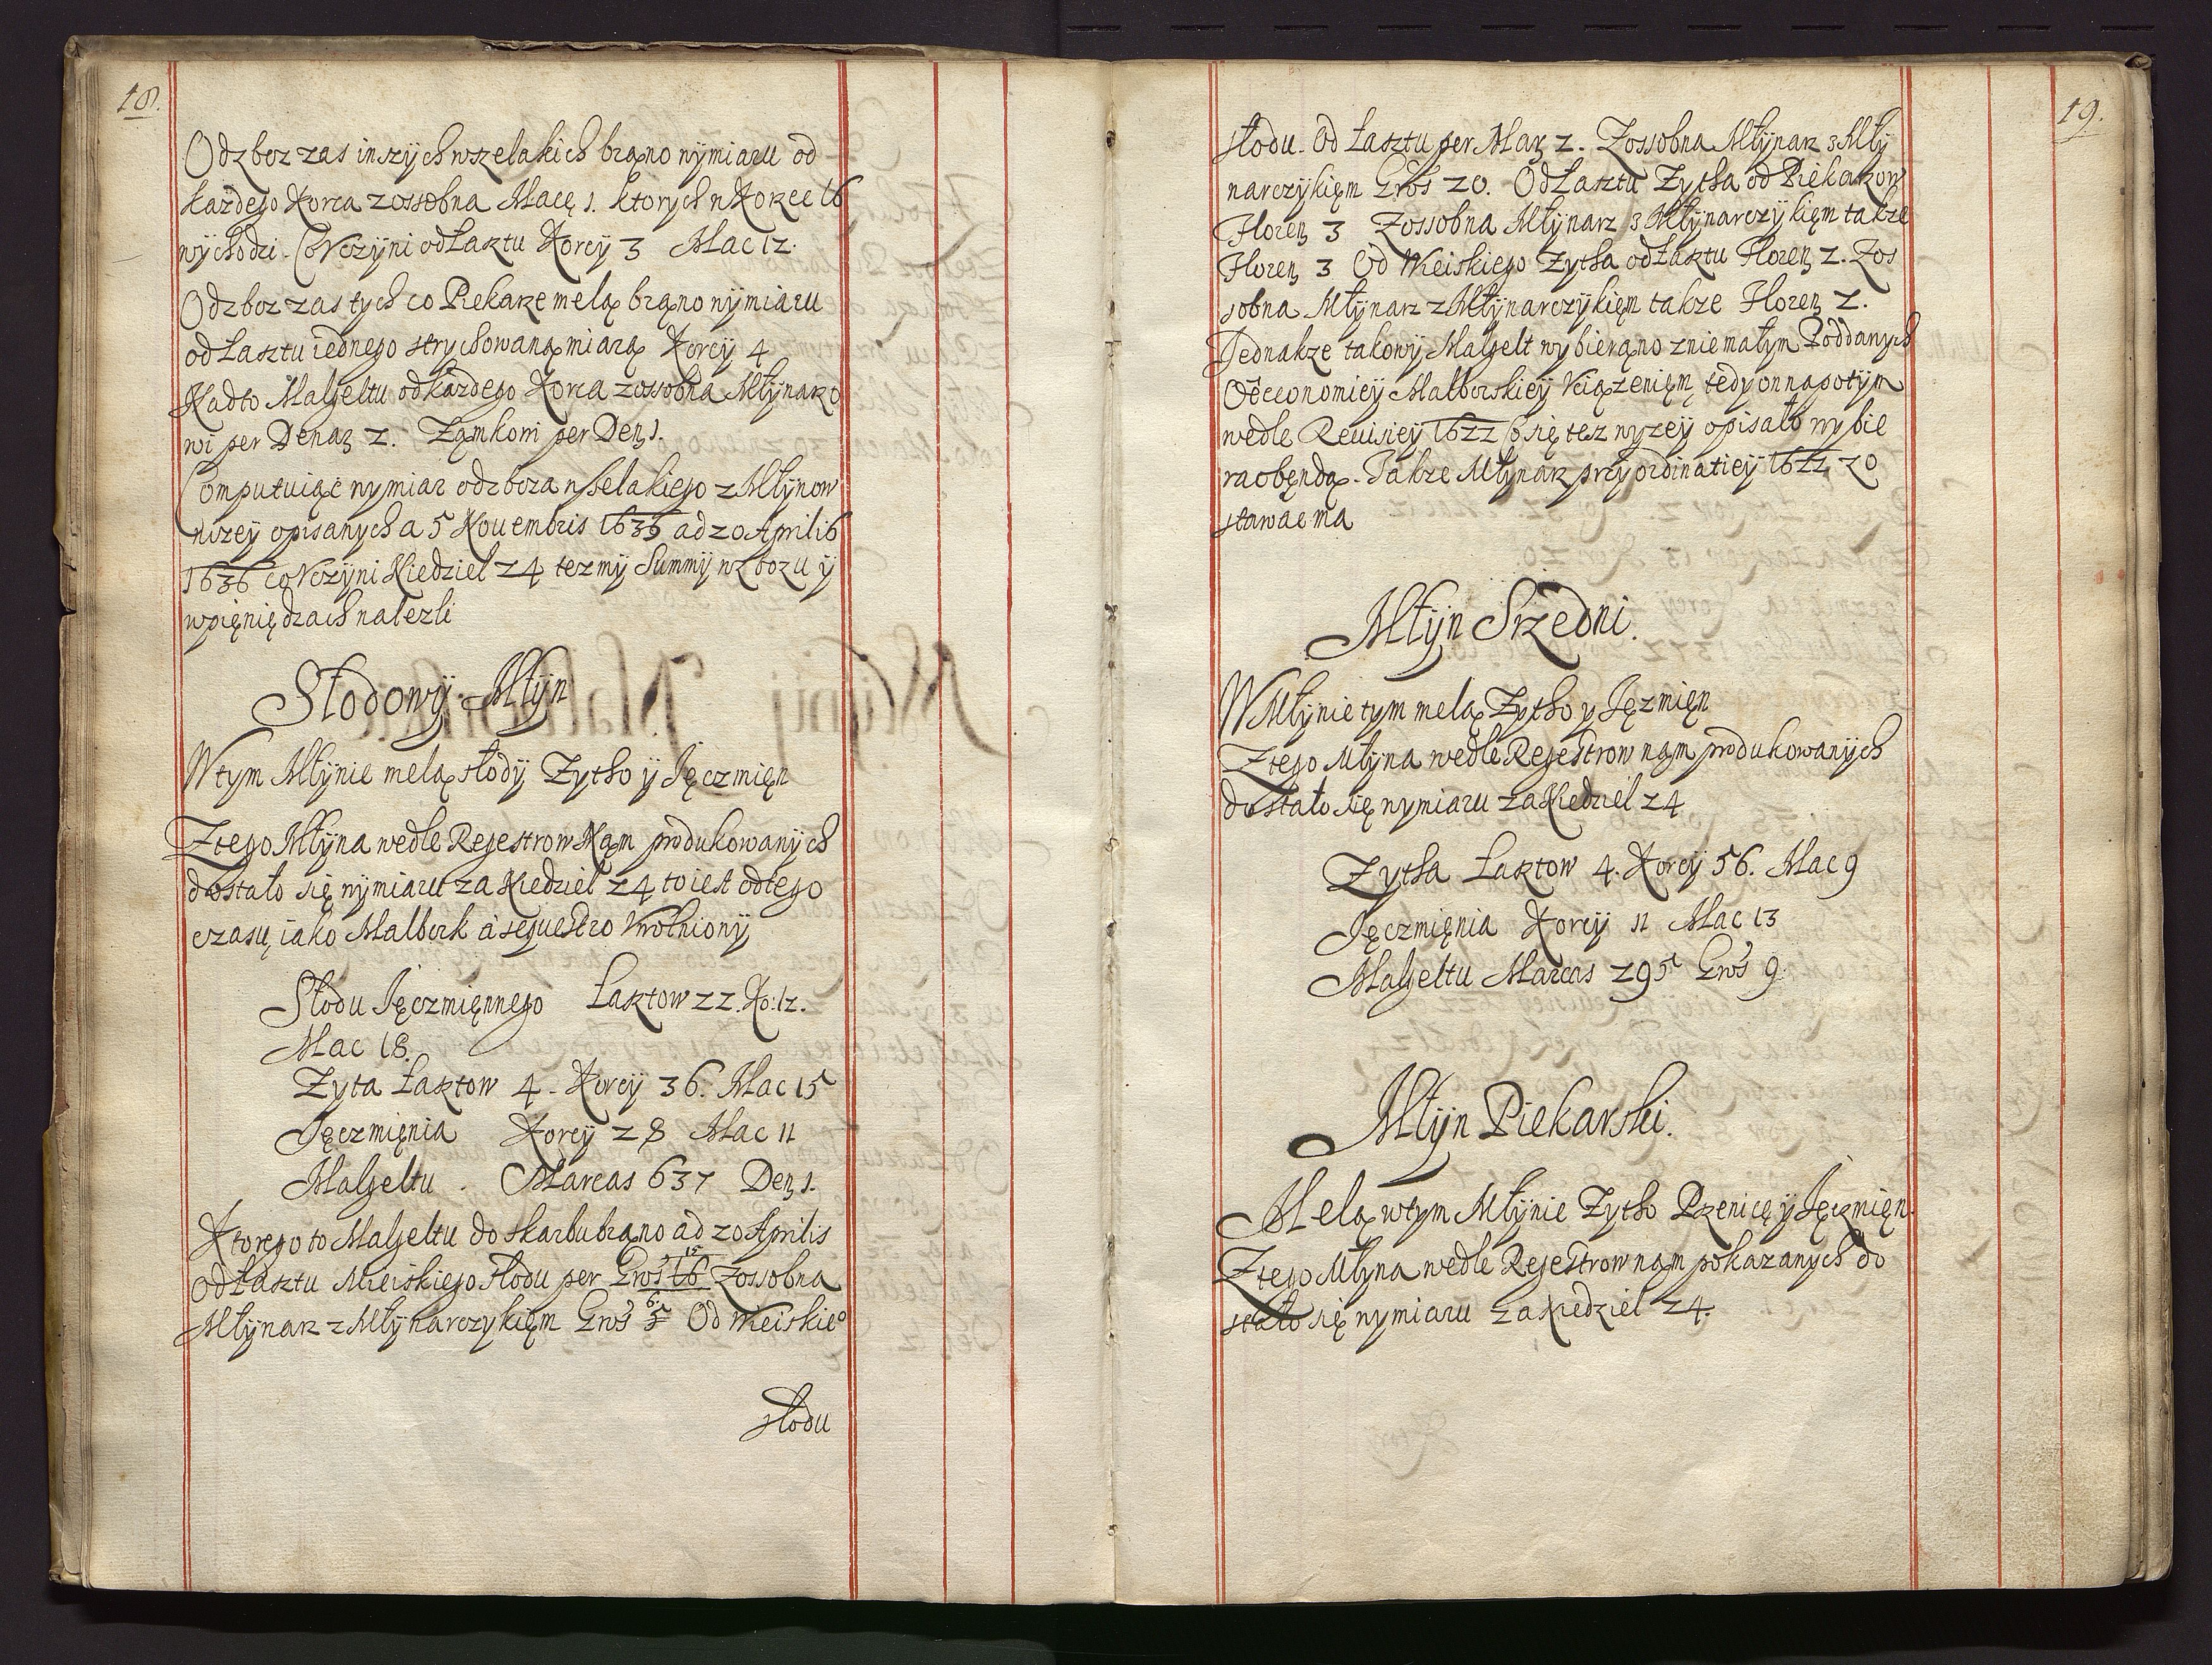 18.
Od zboz zas inszych wszelakich brąno wymiaru od
każdego Korca z ossobna Macę 1. ktorych w Korzec 16
wychodzi. Co Vczyni od Łasztu Korcy 3 Mac 12.
Od zboz zas tych co Piekarze melą brąno wymiaru
od Łasztu iednego strychowaną miarą Korcy 4
Nadto Malgeltu od każdego Korca z ossobna Młynarzo
wi per Denaz 2. Ząmkowi per Dez 1.
Computuiąc wymiar od zboza wselakiego z Młynow
nizey opisanych a 5 Nouembris 1635 ad 20 Aprilis
1636 co Vczyni Niedziel 24 tez my Summy w zbozu y
w pięniędzach nalezli
Słodowy Młyn
W tym Młynie melą słody Zytho y Jęczmięn
Z tego Młyna wedle Regestrow Nąm produkowanych
dostało się wymiaru za Niedziel 24 to iest od tego
czasu, iako Malbork a sequestro Vwolniony
Słodu Jęczmięnnego Łasztow 22. Ko: 12.
Mac 18.
Zyta Łasztow 4 - Korcy 36. Mac 15
Jęczmięnia Korcy 28 Mac 11
Malgeltu. Marcas 637 Dez 1.
Ktorego to Malgeltu do skarbu brąno ad 20 Aprilis
Od Łasztu Mieiskiego słodu per Gros 16 15 Zossobna
Młynarz z Młynarczykięm Gros 5 6 Od Wieiskieo
słodu
19.
słodu. Od Łasztu per Marz 2. Zossobna Młynarz z Mły
narczykięm Gros 20. Od Łasztu Zytha od Piekarzow
Florez 3 Zossobna Młynarz z Młynarczykięm takze
Florez 3 Od Wieiskiego Zytha od Łasztu Florez 2. Zos
sobna Młynarz z Młynarczykięm takze Florez 2.
Jednakze takowy Malgelt wybierąno z niemałym Poddanych
Oeconomiey Malborskiey Vciązenięm, tedy on napotym
wedle Reuisiey 1622 Co się tez wyzey opisało wybie
rac będą. Takze Młynarz przy ordinatiey 1622 zo
stawac ma
Młyn Srzedni.
W Młynie tym melą Zytho y Jęzmięn
Z tego Młyna wedle Regestrow nąm produkowanych
dostało się wymiaru za Niedziel 24
Zytha Łasztow 4. Korcy 56. Mac 9
Jęczmięnia Korcy 11 Mac 13
Malgeltu Marcas 295 Gros 9.
Młyn Piekarski.
Melą w tym Młynie Zytho Przenicę y Jęczmięn.
Z tego Młyna wedle Regestrow nąm pokazanych do
stało się wymiaru za Niedziel 24.